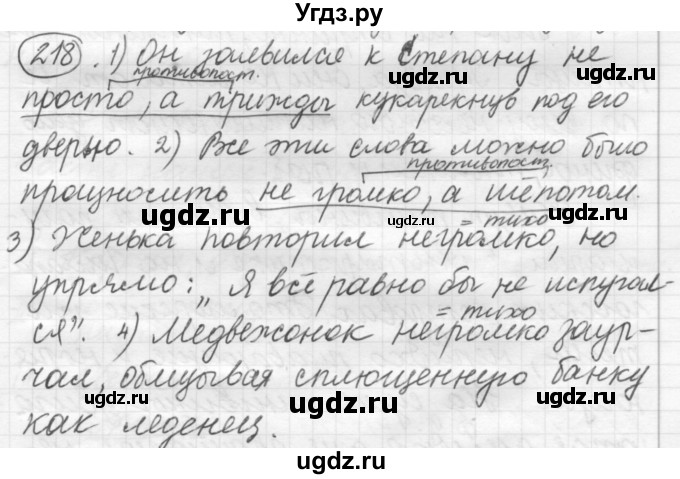 Угдз.ру
218. 1) Он заявился к Степану не
противопост.
просто, а трижды кукарекнув под его
дверью. 2) Все эти слова можно было
противопост.
произносить не громко, а шёпотом.
= тихо
3) Женька повторил негромко, но
упрямо: „Я всё равно бы не испугал-
= тихо
ся". 4) Медвежонок негромко заур-
чал, облизывая сплющенную банку
как леденец.
ugdz.ru ugdz.ru ugdz.ru
ugdz.ru
ugdz.ru ugdz.ru
ugdz.ru
ugdz.ru ugdz.ru
ugdz.ru
ugdz.ru